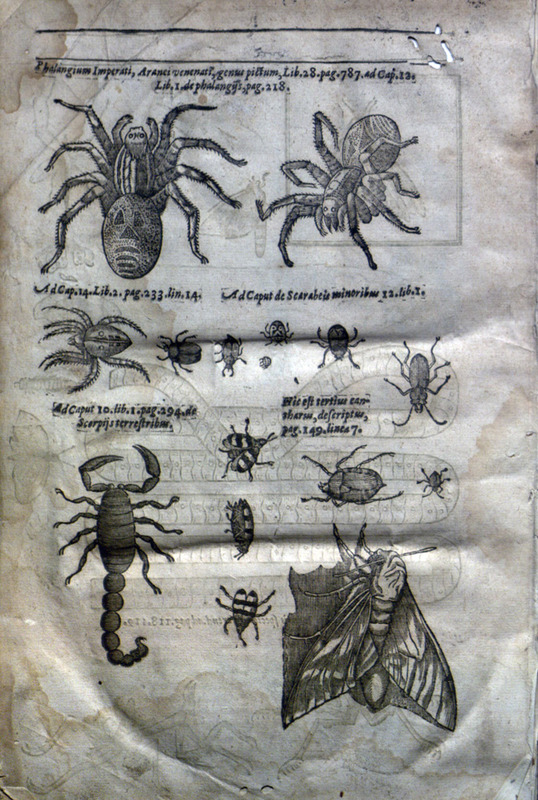 Phalangium Imperati, Aranei venenati, genus pictum, Lib. 28. pag. 787. ad Cap. 12.
Lib. 1. de phalangijs, pag. 218.
Ad Cap. 14. Lib. 2. pag. 233. lin. 14.
Ad Caput de Scarabeis minoribus 12. lib. 1.
Ad Caput 10. lib. 1. pag. 294. de
Scorpijs terrestribus.
Hic est tertius can-
tharus, descriptus,
pag. 149. linea 7.